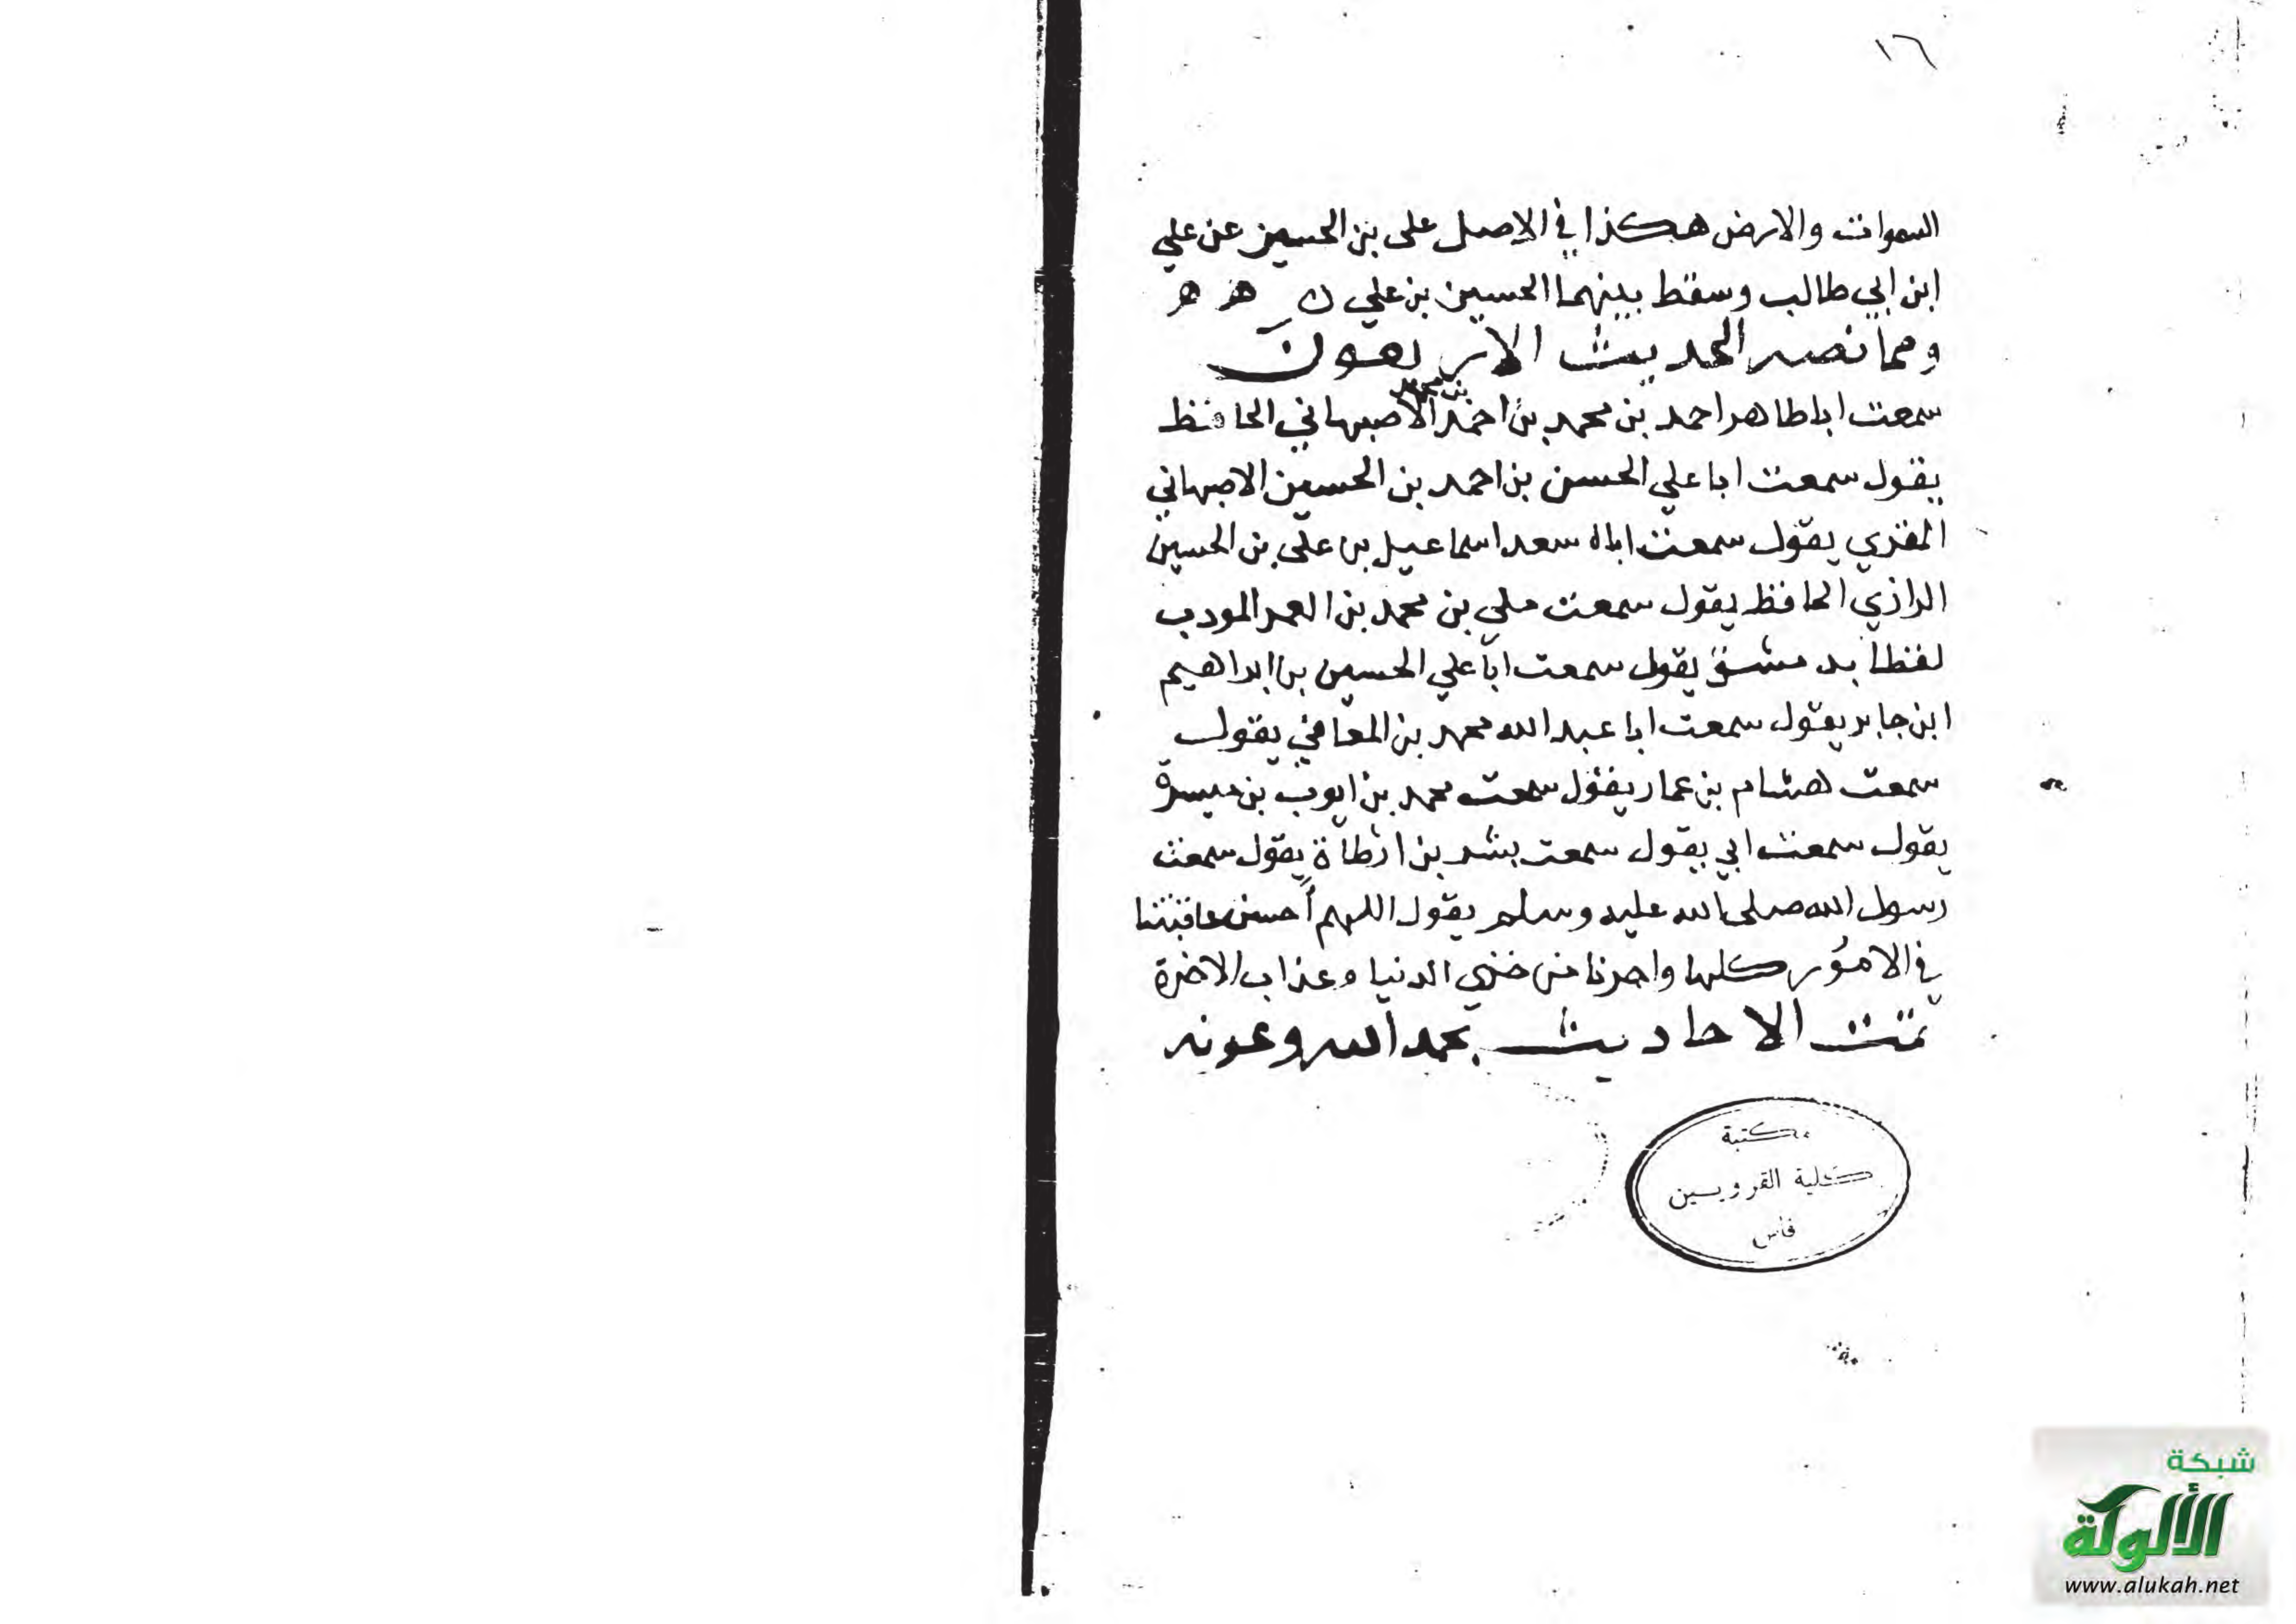 ١٦
السموات والارض هكذا في الاصل على بن الحسين عن علي
ابن ابي طالب وسقط بينهما الحسين بن علي ن ه ه
ومما نصه الحديث الاربعون
بن محمد
سمعت ابا طاهر احمد بن محمد بن احمد الاصبهاني الحافظ
يقول سمعت ابا علي الحسن بن احمد بن الحسين الاصبهاني
المقري يقول سمعت اباه سعد اسماعيل بن على بن الحسين
الرازي الحافظ يقول سمعت علي بن محمد بن العمر المودب
لفظا بدمشق يقول سمعت ابا علي الحسين بن ابراهيم
ابن جابر يقول سمعت ابا عبد الله محمد بن المعافي يقول
سمعت هشام بن عمار يقول سمعت محمد بن ايوب بن ميسرة
يقول سمعت ابي يقول سمعت بشر بن ارطاة يقول سمعت
رسول الله صلى الله عليه وسلم يقول اللهم أحسن عاقبتنا
في الامور كلها واجرنا من خزي الدنيا وعذاب الاخرة
تمت الاحاديث بحمد الله وعونه
مكتبة
كلية القرويين
فاس
شبكة
الألوكة
www.alukah.net